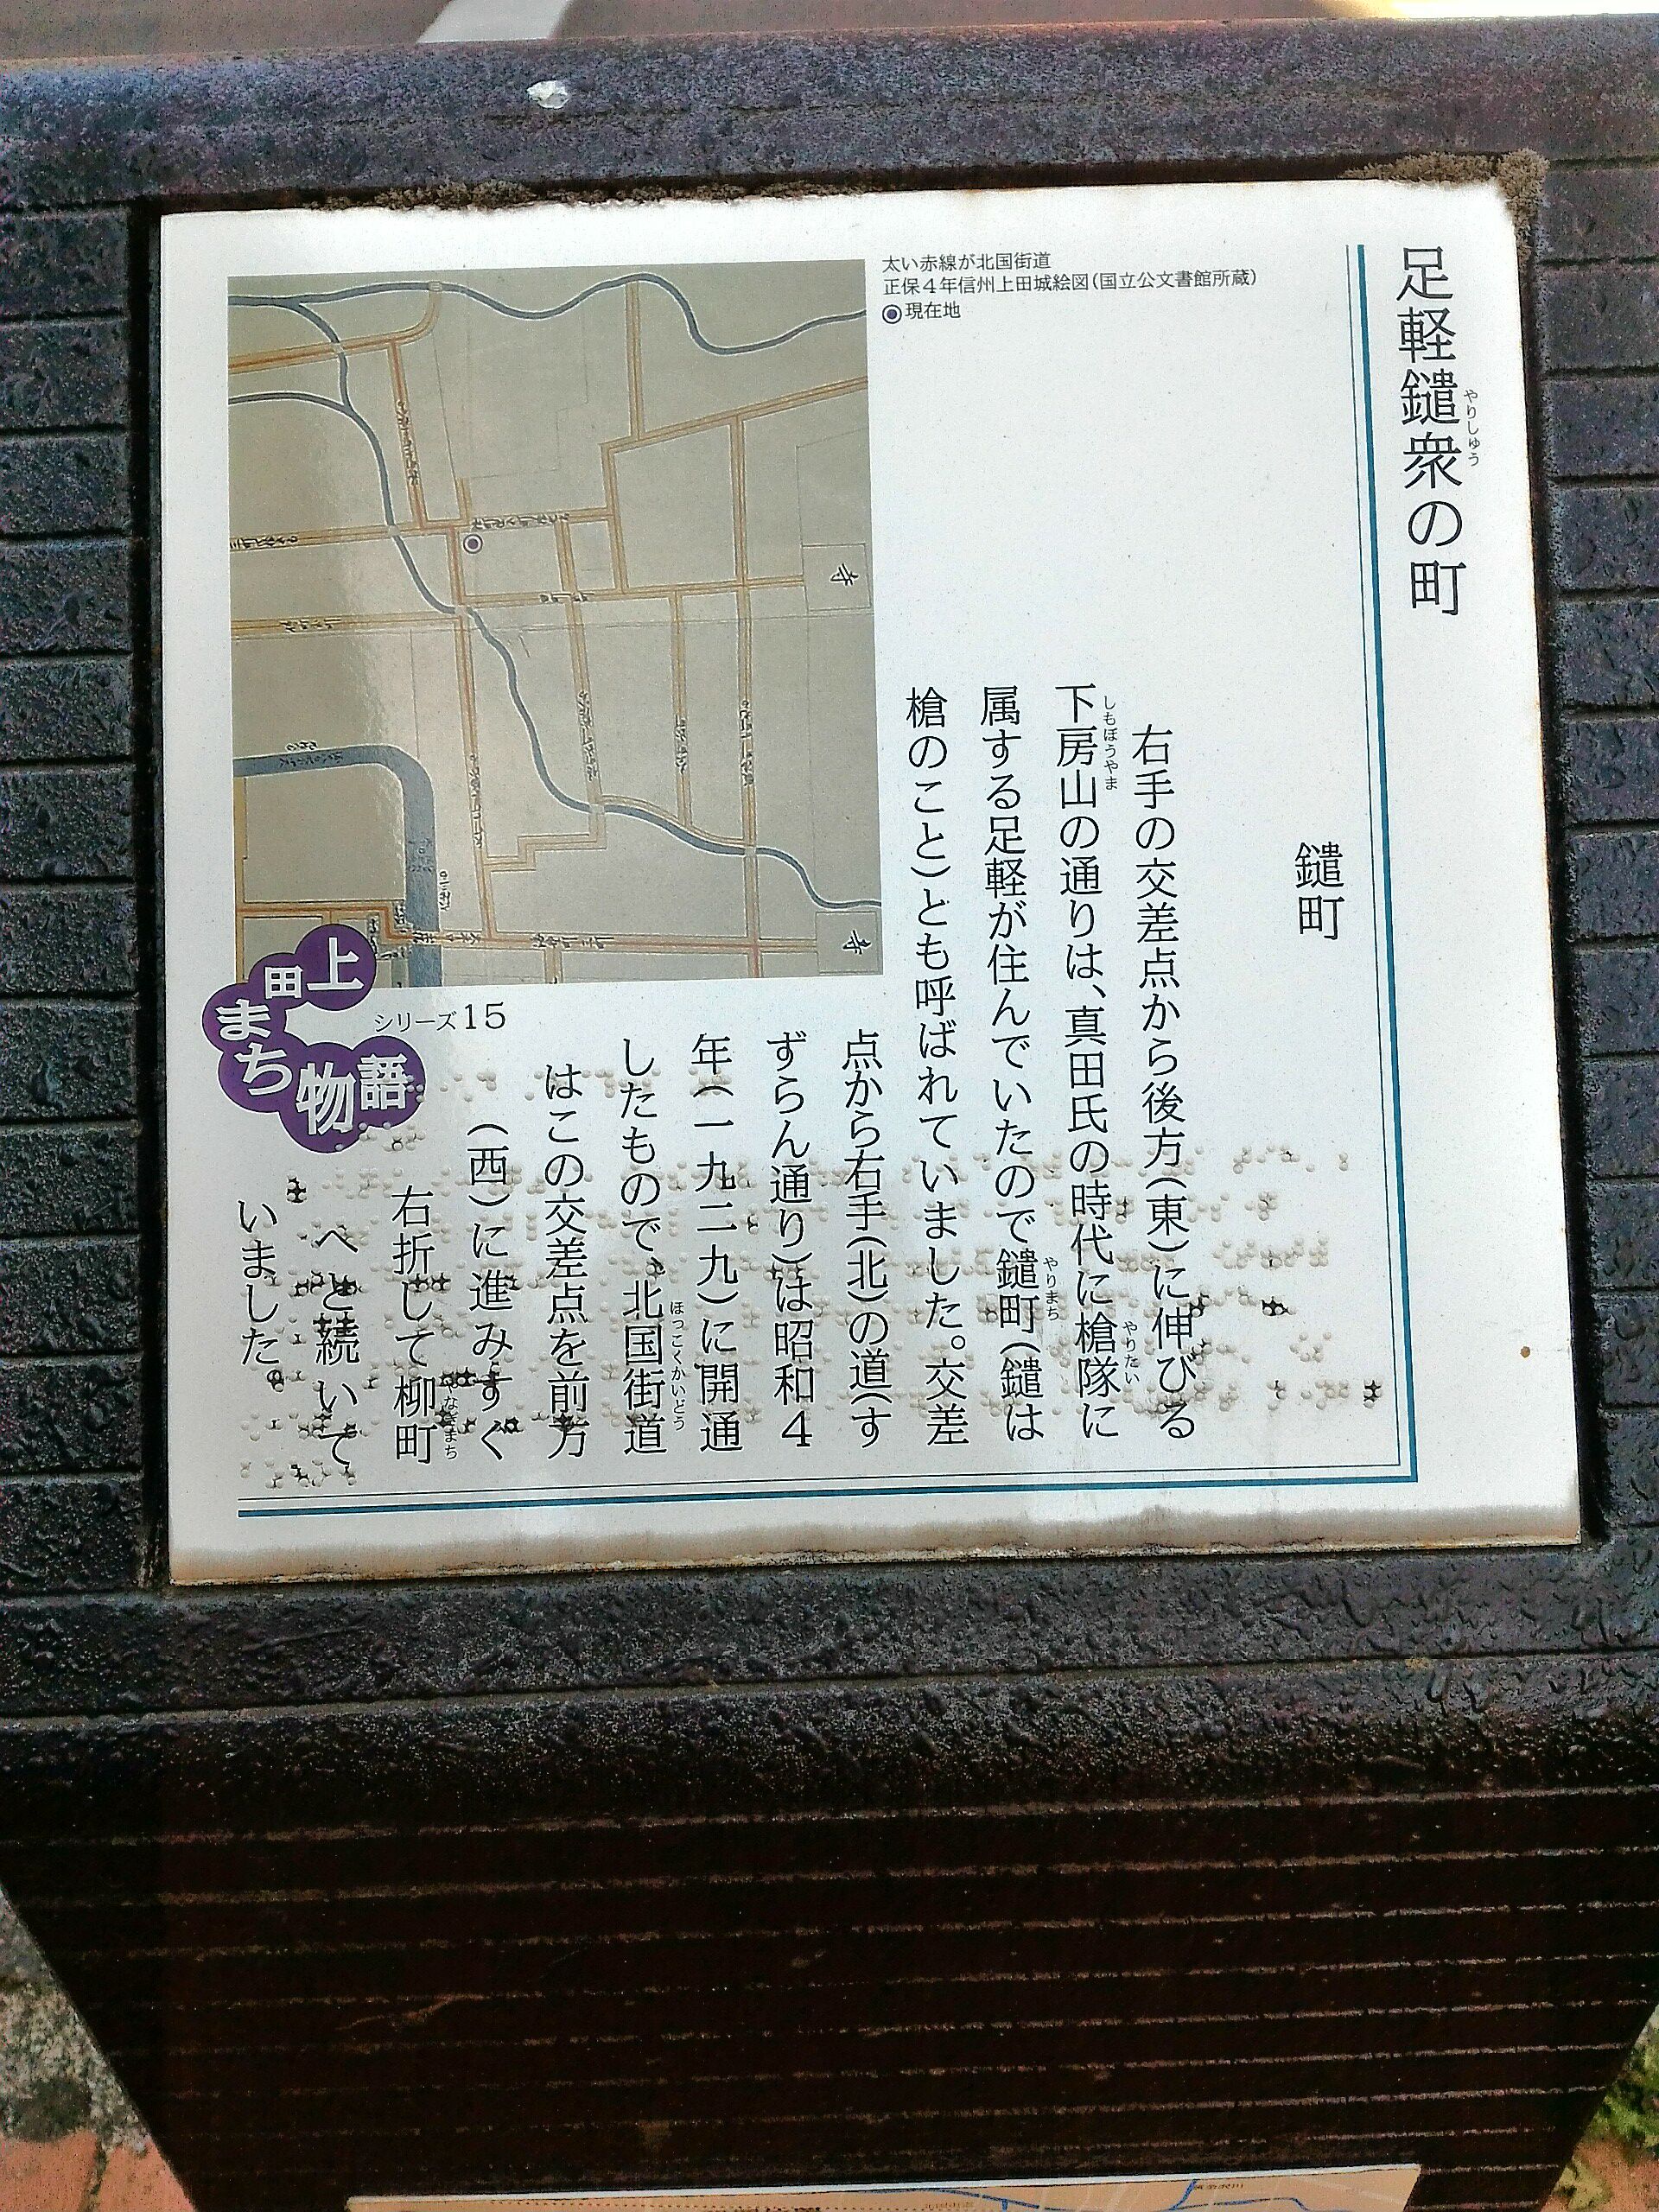 足軽鑓衆の町
やりしゅう
鑓町
右手の交差点から後方(東)に伸びる
下房山の通りは、真田氏の時代に槍隊に
しもぼうやま
やりたい
属する足軽が住んでいたので鑓町(鑓は
やりまち
槍のこと)とも呼ばれていました。交差
点から右手(北)の道(す
ずらん通り)は昭和4
年(一九二九)に開通
したもので、北国街道
ほっこくかいどう
はこの交差点を前方
(西)に進みすぐ
右折して柳町
やなぎまち
へと続いて
いました。
太い赤線が北国街道
正保4年信州上田城絵図(国立公文書館所蔵)
◉現在地
寺
寺
シリーズ15
上田まち物語